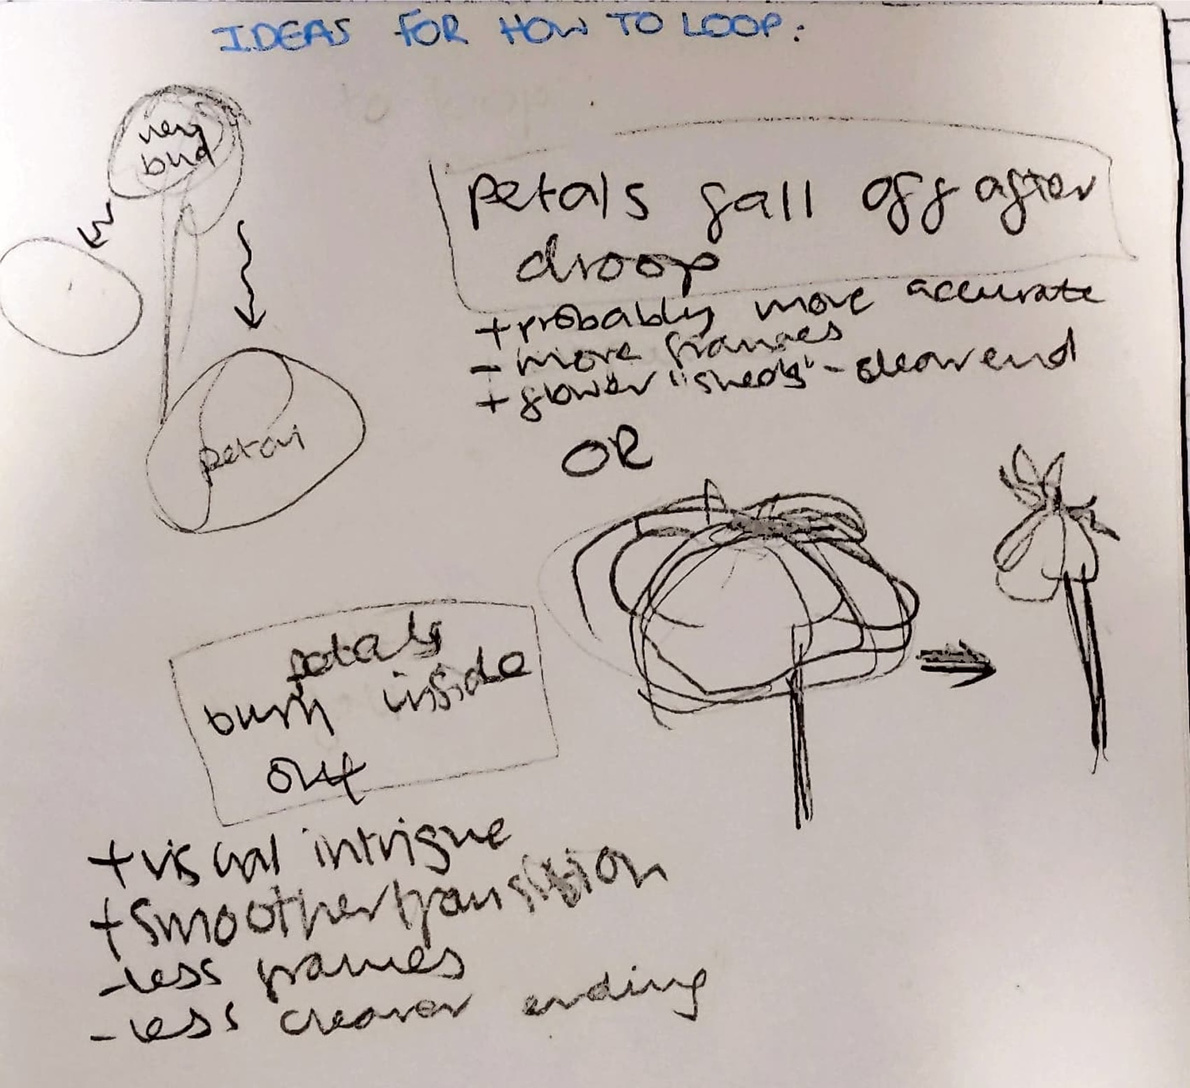 IDEAS FOR HOW TO LOOP:
new
bud
petal
petals fall off after
droop
+probably more accurate
- more frames
+ flower "sheds" - clear end
OR
petals
burn inside
out
+visual intrigue
+smoother transition
-less frames
-less clearer ending